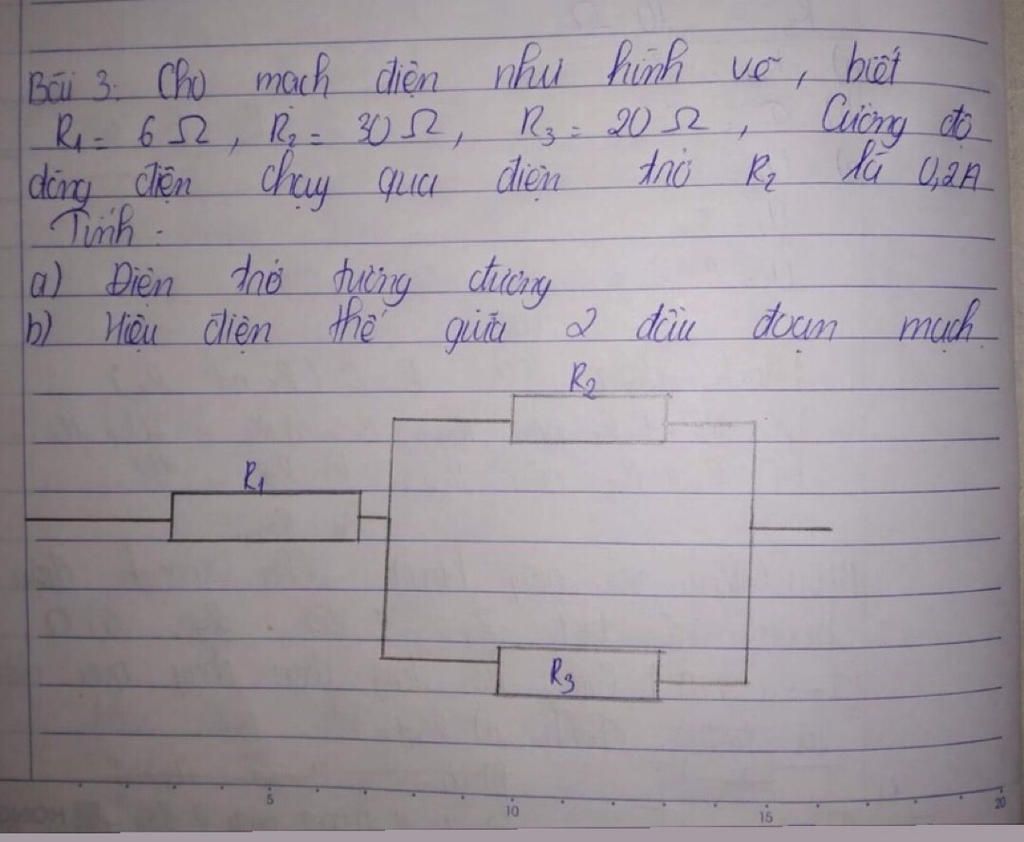 Bài 3: Cho mạch điện như hình vẽ, biết
R₁ = 6 Ω, R₂ = 30 Ω, R₃ = 20 Ω, Cường độ
dòng điện chạy qua điện trở R₂ là 0,2A
Tính:
a) Điện trở tương đương
b) Hiệu điện thế giữa 2 đầu đoạn mạch.
R₂
R₁
R₃
5
10
15
20